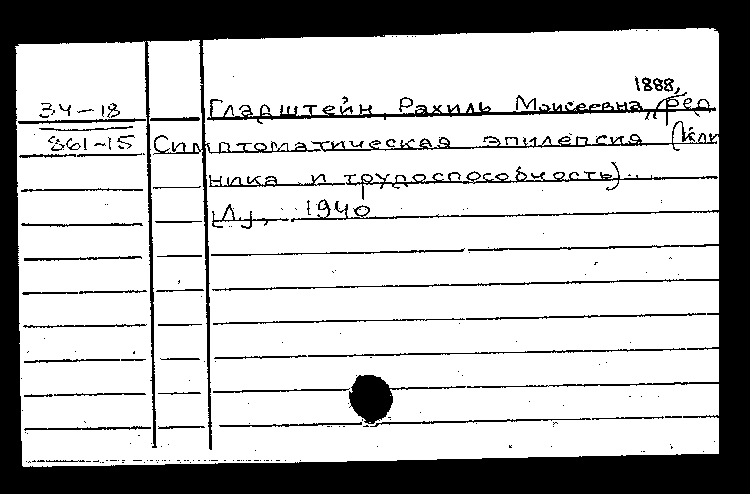 1888,
34-18 Гладштейн, Рахиль Моисеевна, ред
861-15 Симптоматическая эпилепсия (Кли
ника и трудоспособность)..
[Л.], 1940